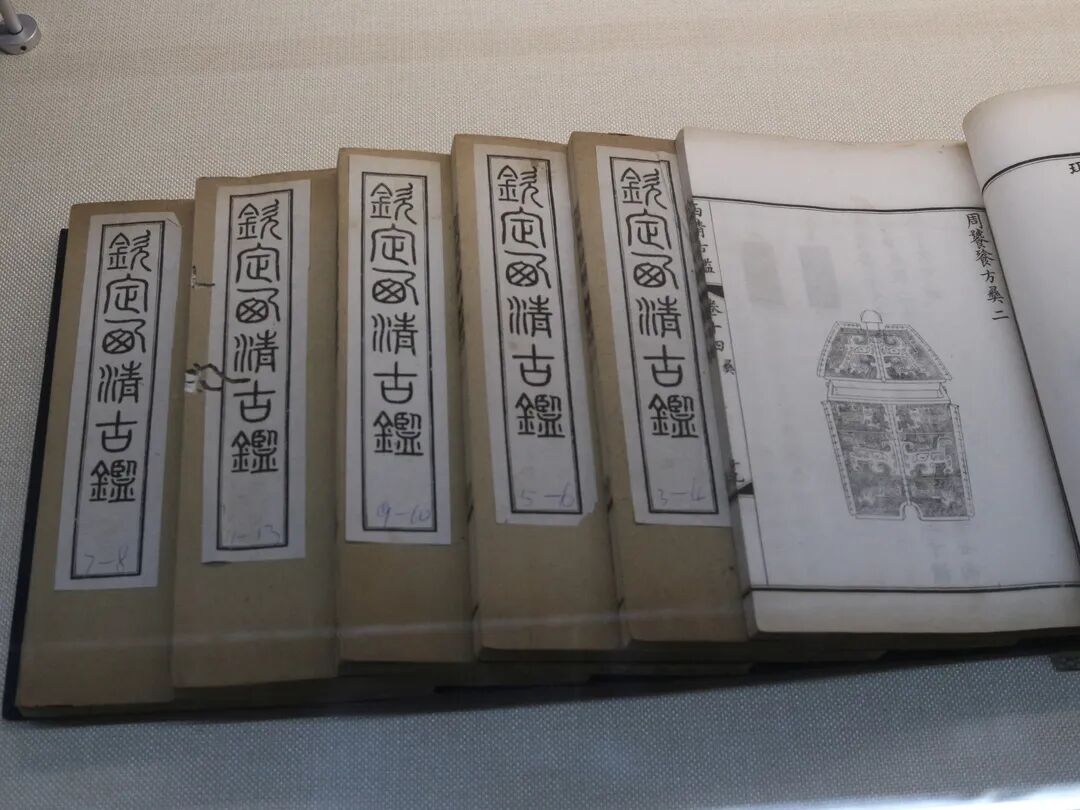 欽定西清古鑑
7-8
欽定西清古鑑
-13
欽定西清古鑑
9-10
欽定西清古鑑
5-6
欽定西清古鑑
3-4
西清古鑑 卷十四 彝
周饕餮方彝二